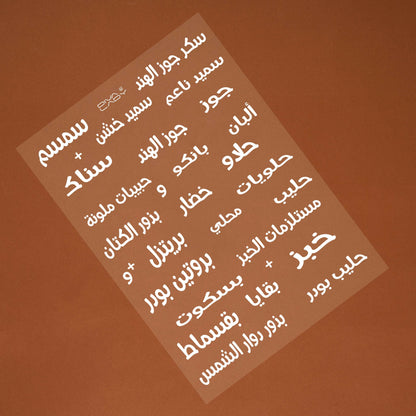 سكر جوز الهند
سميد ناعم
سميد خشن
سمسم
جوز
جوز الهند
+
سناك
ألبان
بانكو
و
حبيبات ملونة
حلاو
خضار
بذور الكتان
حلويات
محلي
بريتزل
+و
حليب
مستلزمات الخبز
بروتين بودر
خبز
+
بسكوت
بقايا
بقسماط
حليب بودر
بذور دوار الشمس